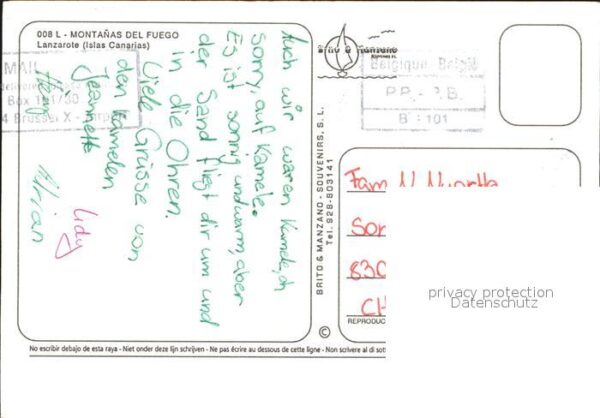 008 L - MONTAÑAS DEL FUEGO
Lanzarote (Islas Canarias)
MAIL
Box 
Brussel X -
Auch wir waren Kamele, oh
sorry, auf Kamele.
Es ist sonnig und warm, aber
der Sand fliegt dir um und
in die Ohren.
Viele Grüsse von
den Kamelen
Jeannette
Heinz
Lidy
Brito & Manzano
Belgique - België
P.P. - P.B.
B - 101
BRITO & MANZANO - SOUVENIRS, S. L.
Tel. 928-803141
©
Fam
830
CH
REPRODUC
privacy protection
Datenschutz
No escribir debajo de esta raya - Niet onder deze lijn schrijven - Ne pas écrire au dessous de cette ligne - Non scrivere al di sott